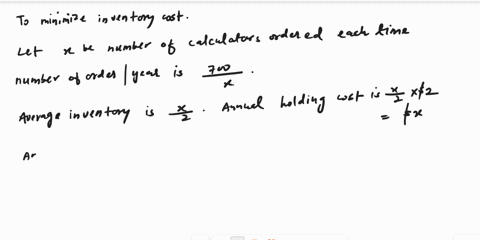 To minimize inventory cost.
Let x be number of calculators ordered each time
number of order / year is 700/x .
Average inventory is x/2 . Annual holding cost is x/2 x $2
= $x
Ar